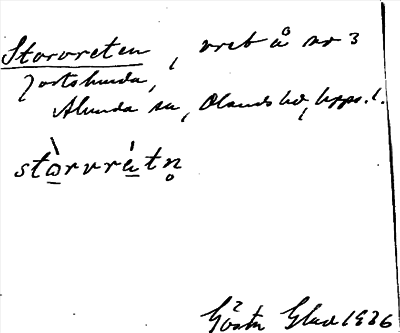 Storvreten, vret å nr 3
Jortshunda,
Alunda sn, Olands hd, Upps. l.
stòrvrátn̥
Gösta Glad 1936